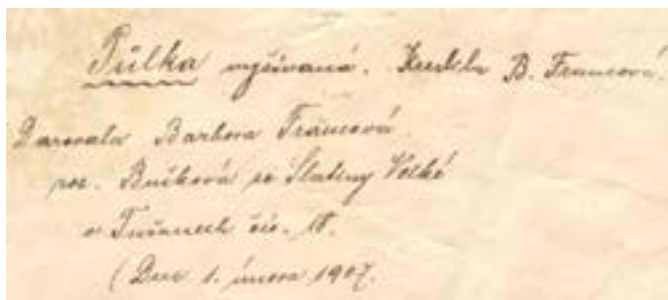 Půlka vyšívaná. Kreslila B. Francová
Darovala Barbora Francová
roz. Bučková ze Slatiny Velké
v Tuřanech čís. 18.
(Dne 1. února 1907.